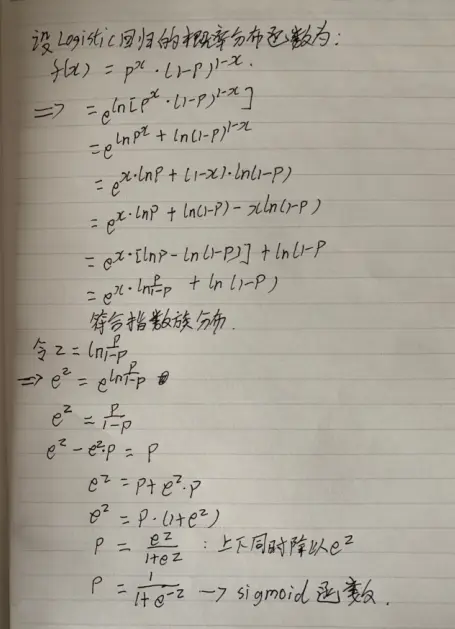 设Logistic回归的概率分布函数为:
f(x) = p^x · (1-p)^{1-x}.
=> = e^{ln[p^x · (1-p)^{1-x}]}
= e^{lnp^x + ln(1-p)^{1-x}}
= e^{x·lnp + (1-x)·ln(1-p)}
= e^{x·lnp + ln(1-p) - xln(1-p)}
= e^{x·[lnp - ln(1-p)] + ln(1-p}
= e^{x·ln\frac{p}{1-p} + ln(1-p)}
符合指数族分布.
令z = ln\frac{p}{1-p}
=> e^z = e^{ln\frac{p}{1-p}}
e^z = \frac{p}{1-p}
e^z - e^z·p = p
e^z = p+e^z·p
e^z = p·(1+e^z)
p = \frac{e^z}{1+e^z} : 上下同时除以e^z
p = \frac{1}{1+e^{-z}} -> sigmoid函数.